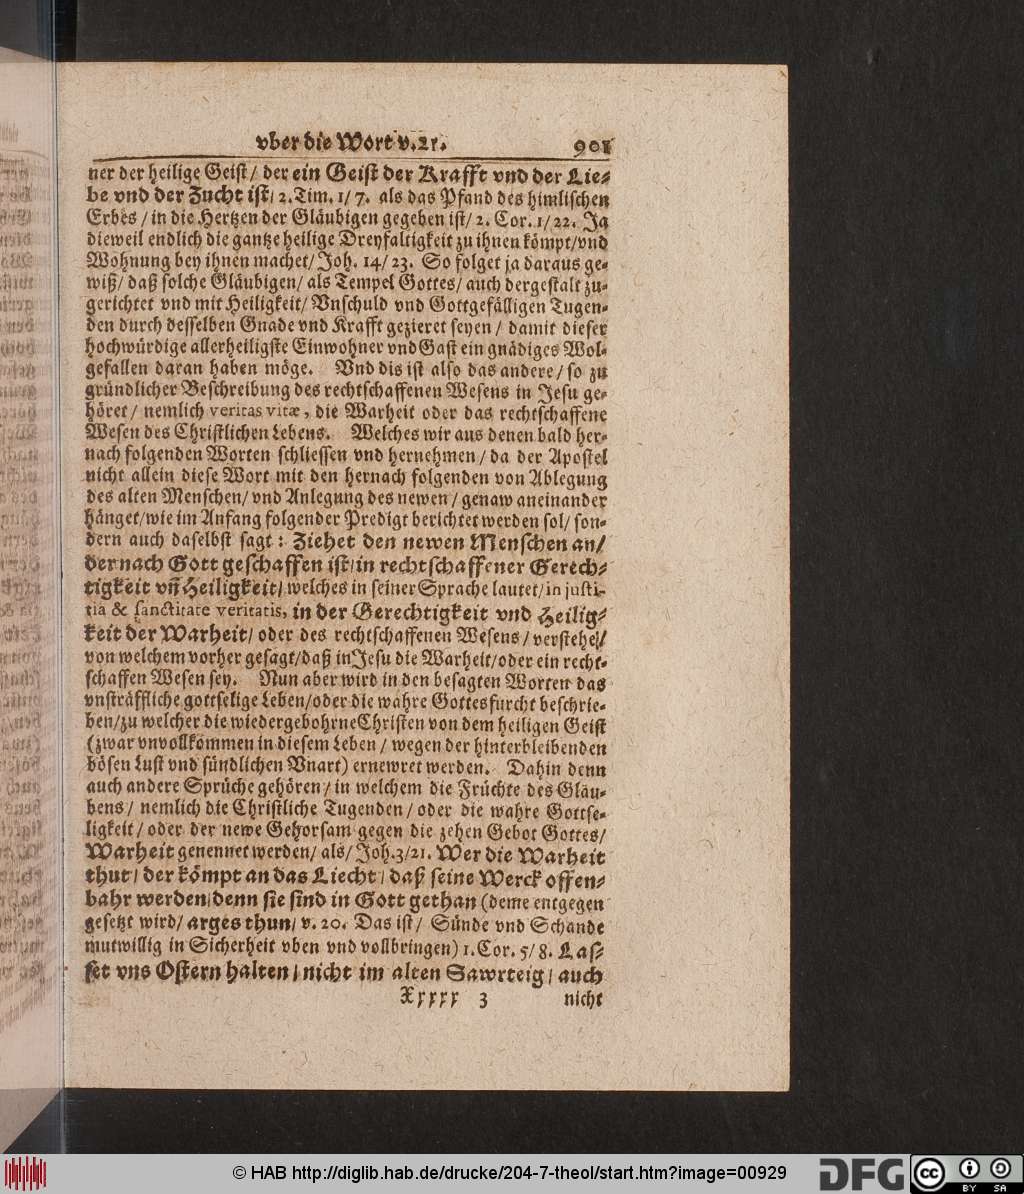 vber die Wort v. 21. 901
ner der heilige Geist / der ein Geist der Krafft vnd der Lie-
be vnd der Zucht ist / 2. Tim. 1 / 7. als das Pfand des himlischen
Erbes / in die Hertzen der Gläubigen gegeben ist / 2. Cor. 1 / 22. Ja
dieweil endlich die gantze heilige Dreyfaltigkeit zu ihnen kömpt / vnd
Wohnung bey ihnen machet / Joh. 14 / 23. So folget ja daraus ge-
wiß / daß solche Gläubigen / als Tempel Gottes / auch dergestalt zu-
gerichtet vnd mit Heiligkeit / Vnschuld vnd Gottgefälligen Tugen-
den durch desselben Gnade vnd Krafft gezieret seyen / damit dieser
hochwürdige allerheiligste Einwohner vnd Gast ein gnädiges Wol-
gefallen daran haben möge. Vnd dis ist also das andere / so zu
gründlicher Beschreibung des rechtschaffenen Wesens in Jesu ge-
höret / nemlich veritas vitæ, die Warheit oder das rechtschaffene
Wesen des Christlichen Lebens. Welches wir aus denen bald her-
nach folgenden Worten schliessen vnd hernehmen / da der Apostel
nicht allein diese Wort mit den hernach folgenden von Ablegung
des alten Menschen / vnd Anlegung des newen / genaw aneinander
hänget / wie im Anfang folgender Predigt berichtet werden sol / son-
dern auch daselbst sagt : Ziehet den newen Menschen an /
der nach Gott geschaffen ist / in rechtschaffener Gerech-
tigkeit vñ Heiligkeit / welches in seiner Sprache lautet / in justi-
tia & sanctitate veritatis, in der Gerechtigkeit vnd Heilig-
keit der Warheit / oder des rechtschaffenen Wesens / verstehe /
von welchem vorher gesagt / daß in Jesu die Warheit / oder ein recht-
schaffen Wesen sey. Nun aber wird in den besagten Worten das
vnsträffliche gottselige Leben / oder die wahre Gottesfurcht beschrie-
ben / zu welcher die wiedergebohrne Christen von dem heiligen Geist
(zwar vnvollkommen in diesem Leben / wegen der hinterbleibenden
bösen Lust vnd sündlichen Vnart) ernewret werden. Dahin denn
auch andere Sprüche gehören / in welchem die Früchte des Glau-
bens / nemlich die Christliche Tugenden / oder die wahre Gottse-
ligkeit / oder der newe Gehorsam gegen die zehen Gebot Gottes /
Warheit genennet werden / als / Joh. 3 / 21. Wer die Warheit
thut / der kömpt an das Liecht / daß seine Werck offen-
bahr werden / denn sie sind in Gott gethan (deme entgegen
gesetzt wird / arges thun / v. 20. Das ist / Sünde vnd Schande
mutwillig in Sicherheit vben vnd vollbringen) 1. Cor. 5 / 8. Las-
set vns Ostern halten / nicht im alten Sawrteig / auch
Xxxxx 3 nicht
© HAB http://diglib.hab.de/drucke/204-7-theol/start.htm?image=00929
DFG
cc BY SA